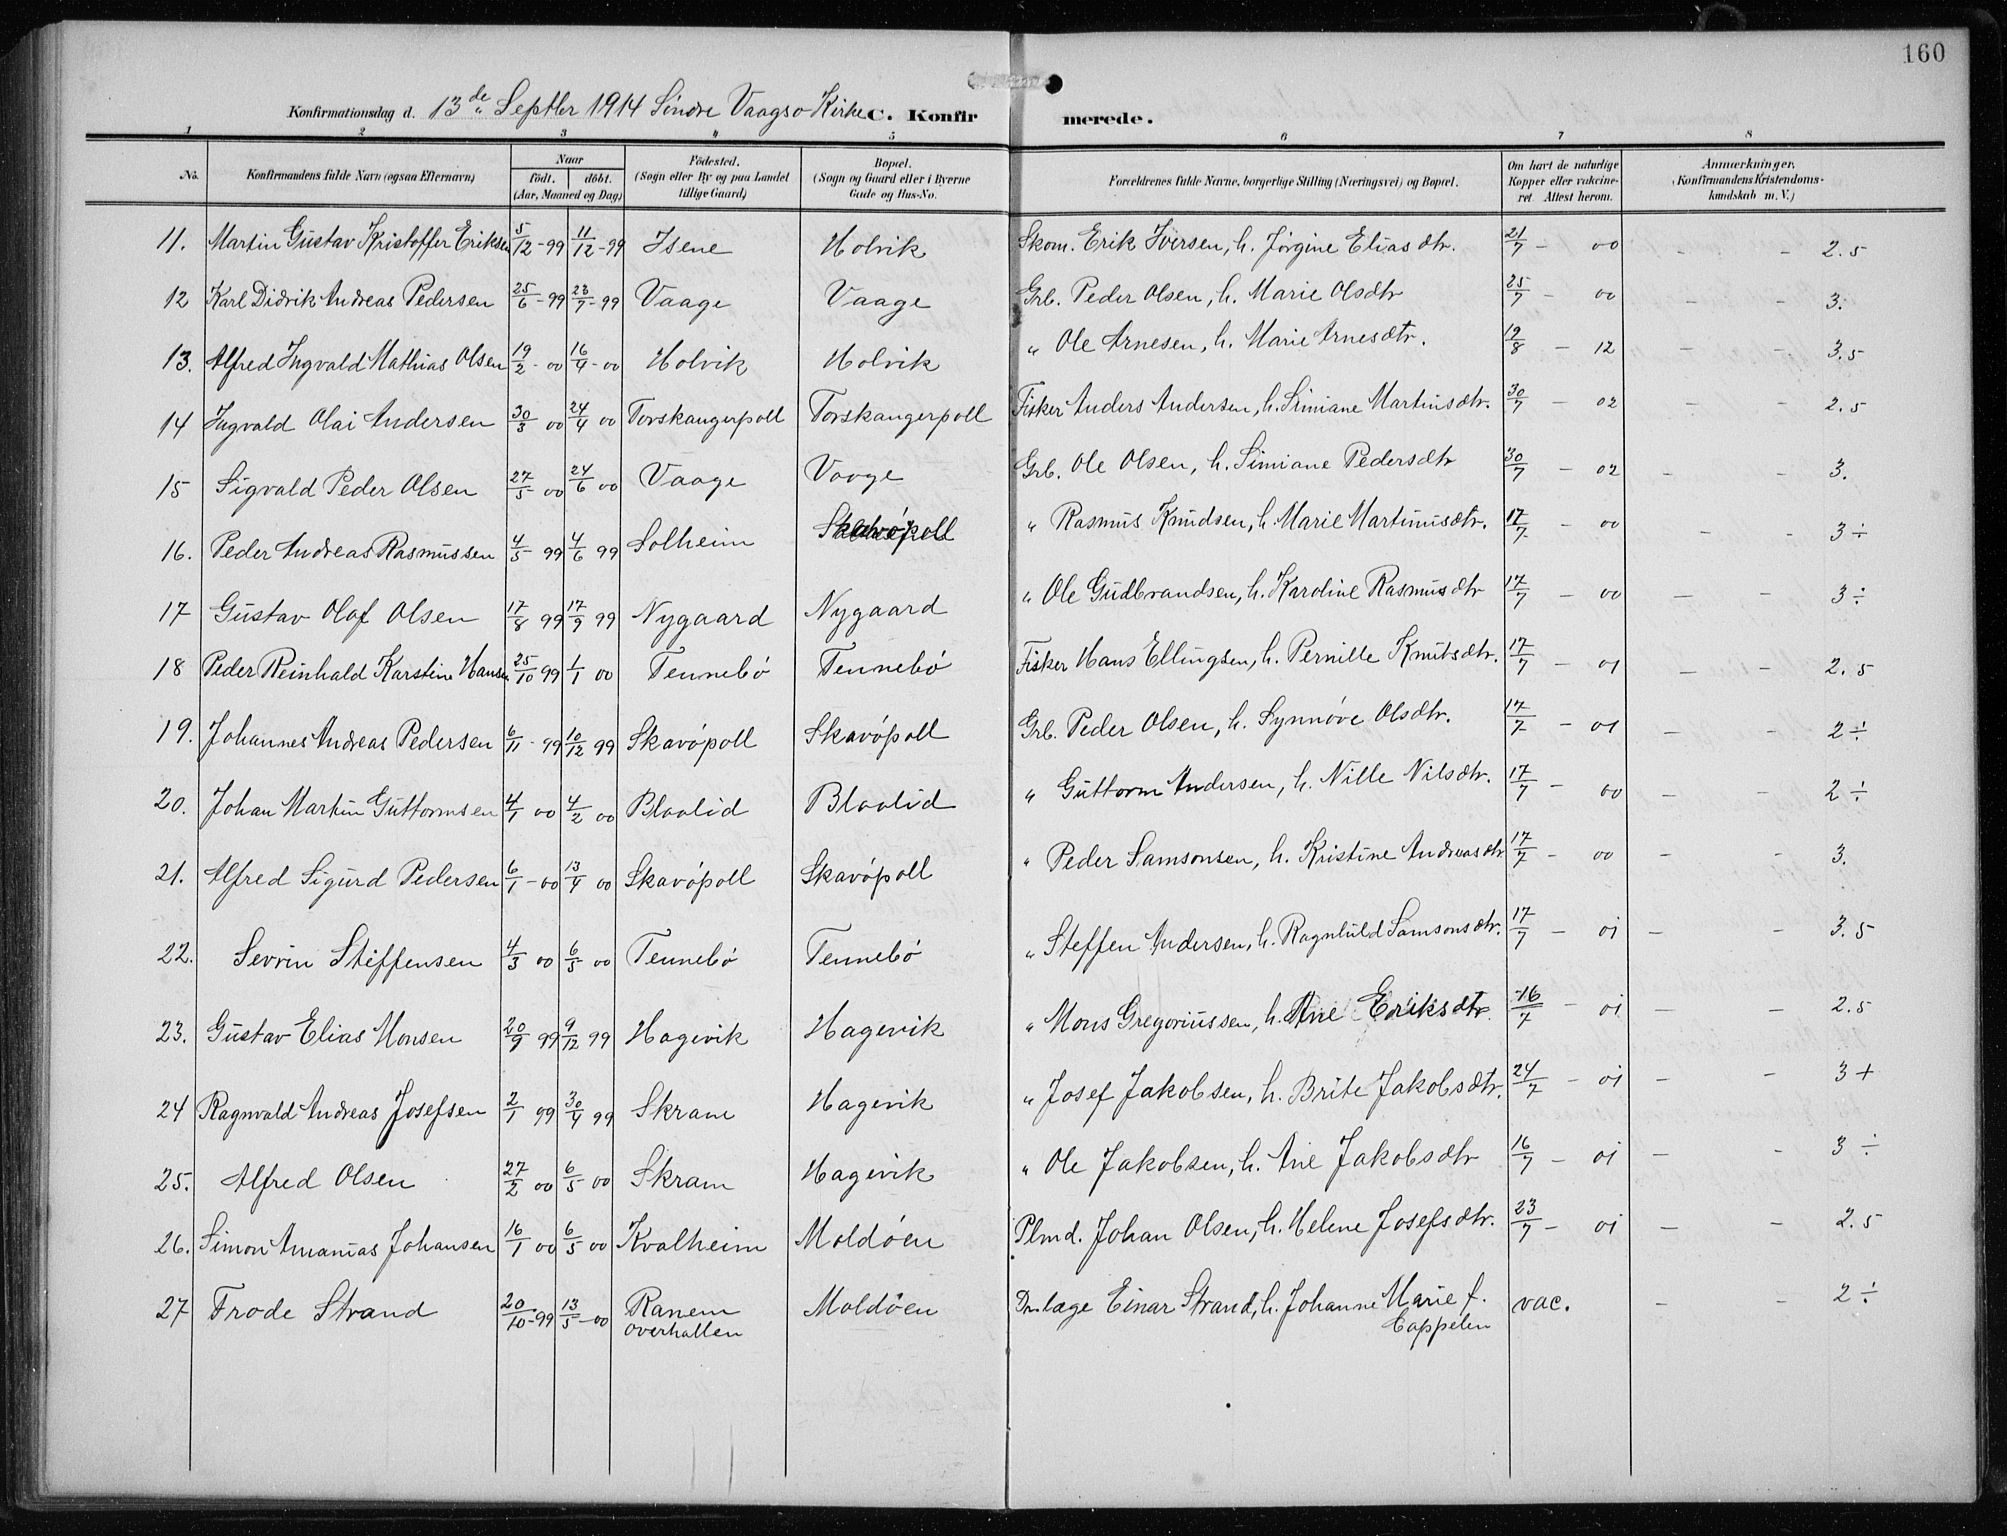 160
Konfirmationsdag d. 13de Septbr 1914 Söndre Vaagsö Kirke C. Konfirmerede.
1 2 3 4 5 6 7 8
No. Konfirmandens fulde Navn (ogsaa Efternavn) Naar födt. döbt. (Aar, Maaned og Dag) Födested. (Sogn eller By og paa Landet tillige Gaard) Bopæl. (Sogn og Gaard eller i Byerne Gade og Hus-No. Forældrenes fulde Navne, borgerlige Stilling (Næringsvei) og Bopæl. Om havt de naturlige Kopper eller vakcineret Attest herom. Anmærkninger. (Konfirmandens Kristendomskundskab m. V.)
11. Martin Gustav Kristoffer Eriksen 5/12-99 11/12-99 Isene Holvik Skom. Erik Iversen, h. Jörgine Eliasdtr. 21/7 - 00 - - 2.5
12 Karl Didrik Andreas Pedersen 25/6-99 23/7-99 Vaage Vaage Grb. Peder Olsen, h. Marie Olsdtr 25/7 - 00 - - 3.
13. Alfred Ingvald Mathias Olsen 19/2-00 16/4-00 Holvik Holvik " Ole Arnesen, h. Marie Arnesdtr. 12/8 - 12 - - 3.5
14 Ingvald Olai Andersen 30/3 00 24/4 00 Torskangerpoll Torskangerpoll Fisker Anders Andersen, h. Simiane Martinsdtr. 30/7 - 02 - - 2.5
15 Sigvald Peder Olsen 27/5 00 24/6 00 Vaage Vaage Grb. Ole Olsen, h. Simiane Pedersdtr 30/7 - 02 - - 3.
16. Peder Andreas Rasmussen 4/5 99 4/6 99 Solheim Skavöpoll " Rasmus Knudsen, h. Marie Martinusdtr. 17/7 - 00 - - 3÷
17 Gustav Olaf Olsen 17/8 99 17/9 99 Nygaard Nygaard " Ole Gudbrandsen, h. Karoline Rasmusdtr 17/7 - 00 - - 3÷
18 Peder Reinhald Karstine Hansen 25/10 99 1/1 00 Tennebö Tennebö Fisker Hans Ellingsen, h. Pernille Knutsdtr. 17/7 - 01 - - 2.5
19. Johannes Andreas Pedersen 6/11-99 10/12 99 Skavöpoll Skavöpoll Grb. Peder Olsen, h. Synnöve Olsdtr. 17/7 - 01 - - 2÷
20. Johan Martin Guttormsen 4/1 00 4/2 00 Blaalid Blaalid " Guttorm Andersen, h. Nille Nilsdtr. 17/7 - 00 - - 2÷
21. Alfred Sigurd Pedersen 6/1-00 13/4 00 Skavöpoll Skavöpoll " Peder Samsonsen, h. Kristine Andreasdtr 17/7 - 00 - - 3.
22. Sevrin Steffensen 4/3 00 6/5 00 Tennebö Tennebö " Steffen Andersen, h. Ragnhild Samsonsdtr. 17/7 - 01 - - 3.5
23. Gustav Elias Monsen 20/9 99 9/12 99 Hagevik Hagevik " Mons Gregoriussen, h. Ane Eriksdtr. 16/7 - 01 - - 2.5
24 Ragnvald Andreas Josefsen 2/1 99 30/4 99 Skram Hagevik " Josef Jakobsen, h. Brite Jakobsdtr. 24/7 - 01 - - 3+
25. Alfred Olsen 27/2 00 6/5 00 Skram Hagevik " Ole Jakobsen, h. Ane Jakobsdtr 16/7 - 01 - - 3÷
26. Simon Ananias Johansen 16/1 00 6/5 00 Kvalheim Moldöen Plmd. Johan Olsen, h. Helene Josefsdtr. 23/7 - 01 - - 2.5
27 Frode Strand 20/10-99 13/5-00 Ranem overhallen Moldöen Dr.læge Einar Strand, h. Johanne Marie f. Cappelen vac. - - 2÷